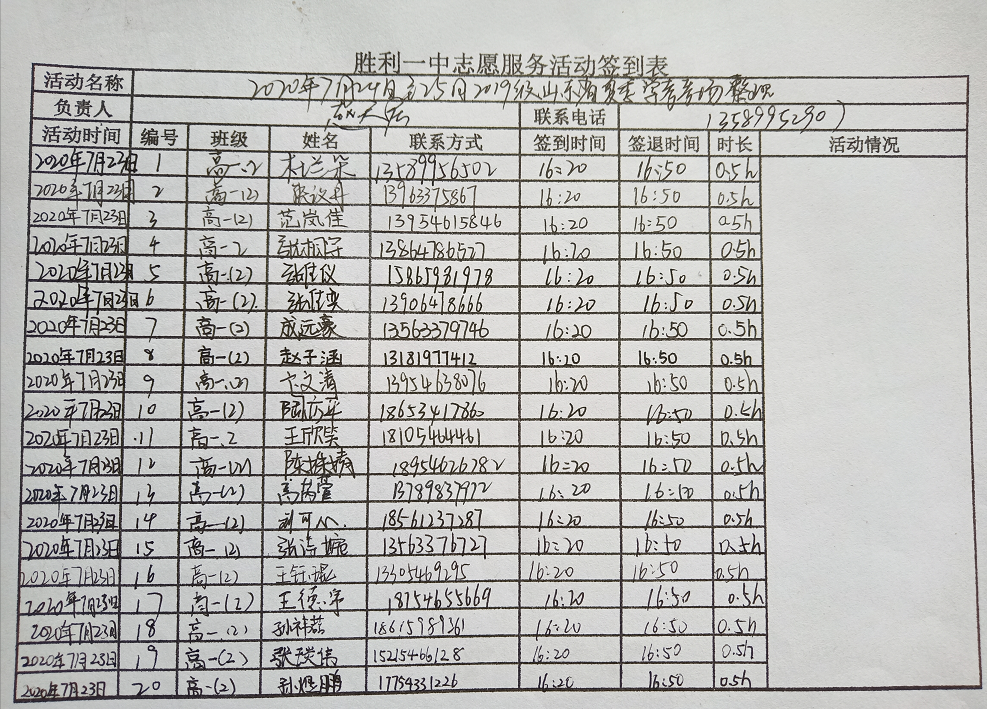 胜利一中志愿服务活动签到表
活动名称 2020年7月24日至25日2019级山东省夏季学考考场整理
负责人 联系电话 13589952907
活动时间 编号 班级 姓名 联系方式 签到时间 签退时间 时长 活动情况
2020年7月23日 1 高一.2 杜兰朵 13589956502 16:20 16:50 0.5h
2020年7月23日 2 高一(2) 13963375867 16:20 16:50 0.5h
2020年7月23日 3 高一(2) 范岚佳 13954615846 16:20 16:50 0.5h
2020年7月23日 4 高一.2 13864786527 16:20 16:50 0.5h
2020年7月23日 5 高一(2) 张佳仪 15865981978 16:20 16:50 0.5h
2020年7月23日 6 高一(2) 13906478666 16:20 16:50 0.5h
2020年7月23日 7 高一(2) 成远豪 13563379746 16:20 16:50 0.5h
2020年7月23日 8 高一(2) 赵子涵 13181977412 16:20 16:50 0.5h
2020年7月23日 9 高一(2) 文清 13954638076 16:20 16:50 0.5h
2020年7月23日 10 高一(2) 18653417360 16:20 16:50 0.5h
2020年7月23日 11 高一.2 王欣笑 18105464461 16:20 16:50 0.5h
2020年7月23日 12 高一(2) 陈姝婧 18954626782 16:20 16:50 0.5h
2020年7月23日 13 高一(2) 13789837972 16:20 16:50 0.5h
2020年7月23日 14 高一(2) 刘可心 18561237287 16:20 16:50 0.5h
2020年7月23日 15 高一(2) 张诗婉 13563376727 16:20 16:50 0.5h
2020年7月23日 16 高一(2) 王钰琨 13305469295 16:20 16:50 0.5h
2020年7月23日 17 高一(2) 王德宇 18754655669 16:20 16:50 0.5h
2020年7月23日 18 高一(2) 孙祥茹 18615989261 16:20 16:50 0.5h
2020年7月23日 19 高一(2) 张琰伟 15215466128 16:20 16:50 0.5h
2020年7月23日 20 高一(2) 孙煜鹏 17754331226 16:20 16:50 0.5h